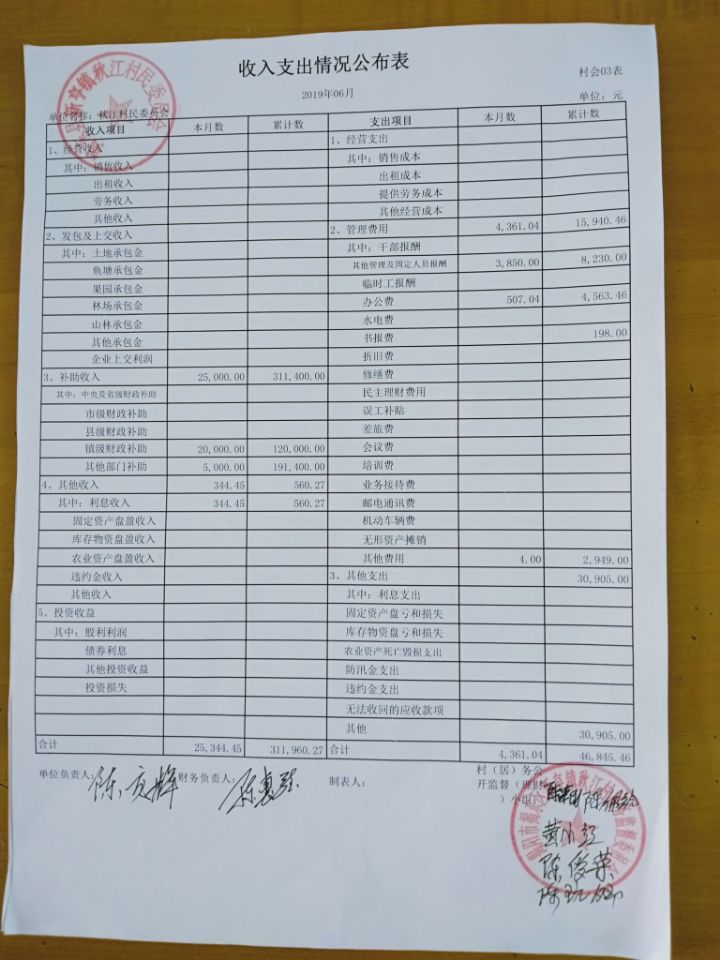 收入支出情况公布表
村会03表
2019年06月
单位名称：秋江村民委员会 单位：元
收入项目 本月数 累计数 支出项目 本月数 累计数
1、经营收入 1、经营支出
其中：销售收入 其中：销售成本
出租收入 出租成本
劳务收入 提供劳务成本
其他收入 其他经营成本
2、发包及上交收入 2、管理费用 4,361.04 15,940.46
其中：土地承包金 其中：干部报酬
鱼塘承包金 其他管理及固定人员报酬 3,850.00 8,230.00
果园承包金 临时工报酬
林场承包金 办公费 507.04 4,563.46
山林承包金 水电费
其他承包金 书报费 198.00
企业上交利润 折旧费
3、补助收入 25,000.00 311,400.00 修缮费
其中：中央及省级财政补助 民主理财费用
市级财政补助 误工补贴
县级财政补助 差旅费
镇级财政补助 20,000.00 120,000.00 会议费
其他部门补助 5,000.00 191,400.00 培训费
4、其他收入 344.45 560.27 业务接待费
其中：利息收入 344.45 560.27 邮电通讯费
固定资产盘盈收入 机动车辆费
库存物资盘盈收入 无形资产摊销
农业资产盘盈收入 其他费用 4.00 2,949.00
违约金收入 3、其他支出 30,905.00
其他收入 其中：利息支出
5、投资收益 固定资产盘亏和损失
其中：股利利润 库存物资盘亏和损失
债券利息 农业资产死亡毁损支出
其他投资收益 防汛金支出
投资损失 违约金支出
无法收回的应收款项
其他 30,905.00
合计 25,344.45 311,960.27 合计 4,361.04 46,845.46
单位负责人： 财务负责人： 陈惠强 制表人： 村（居）务公
开监督（理财
）小组：
黄小红
陈俊荣